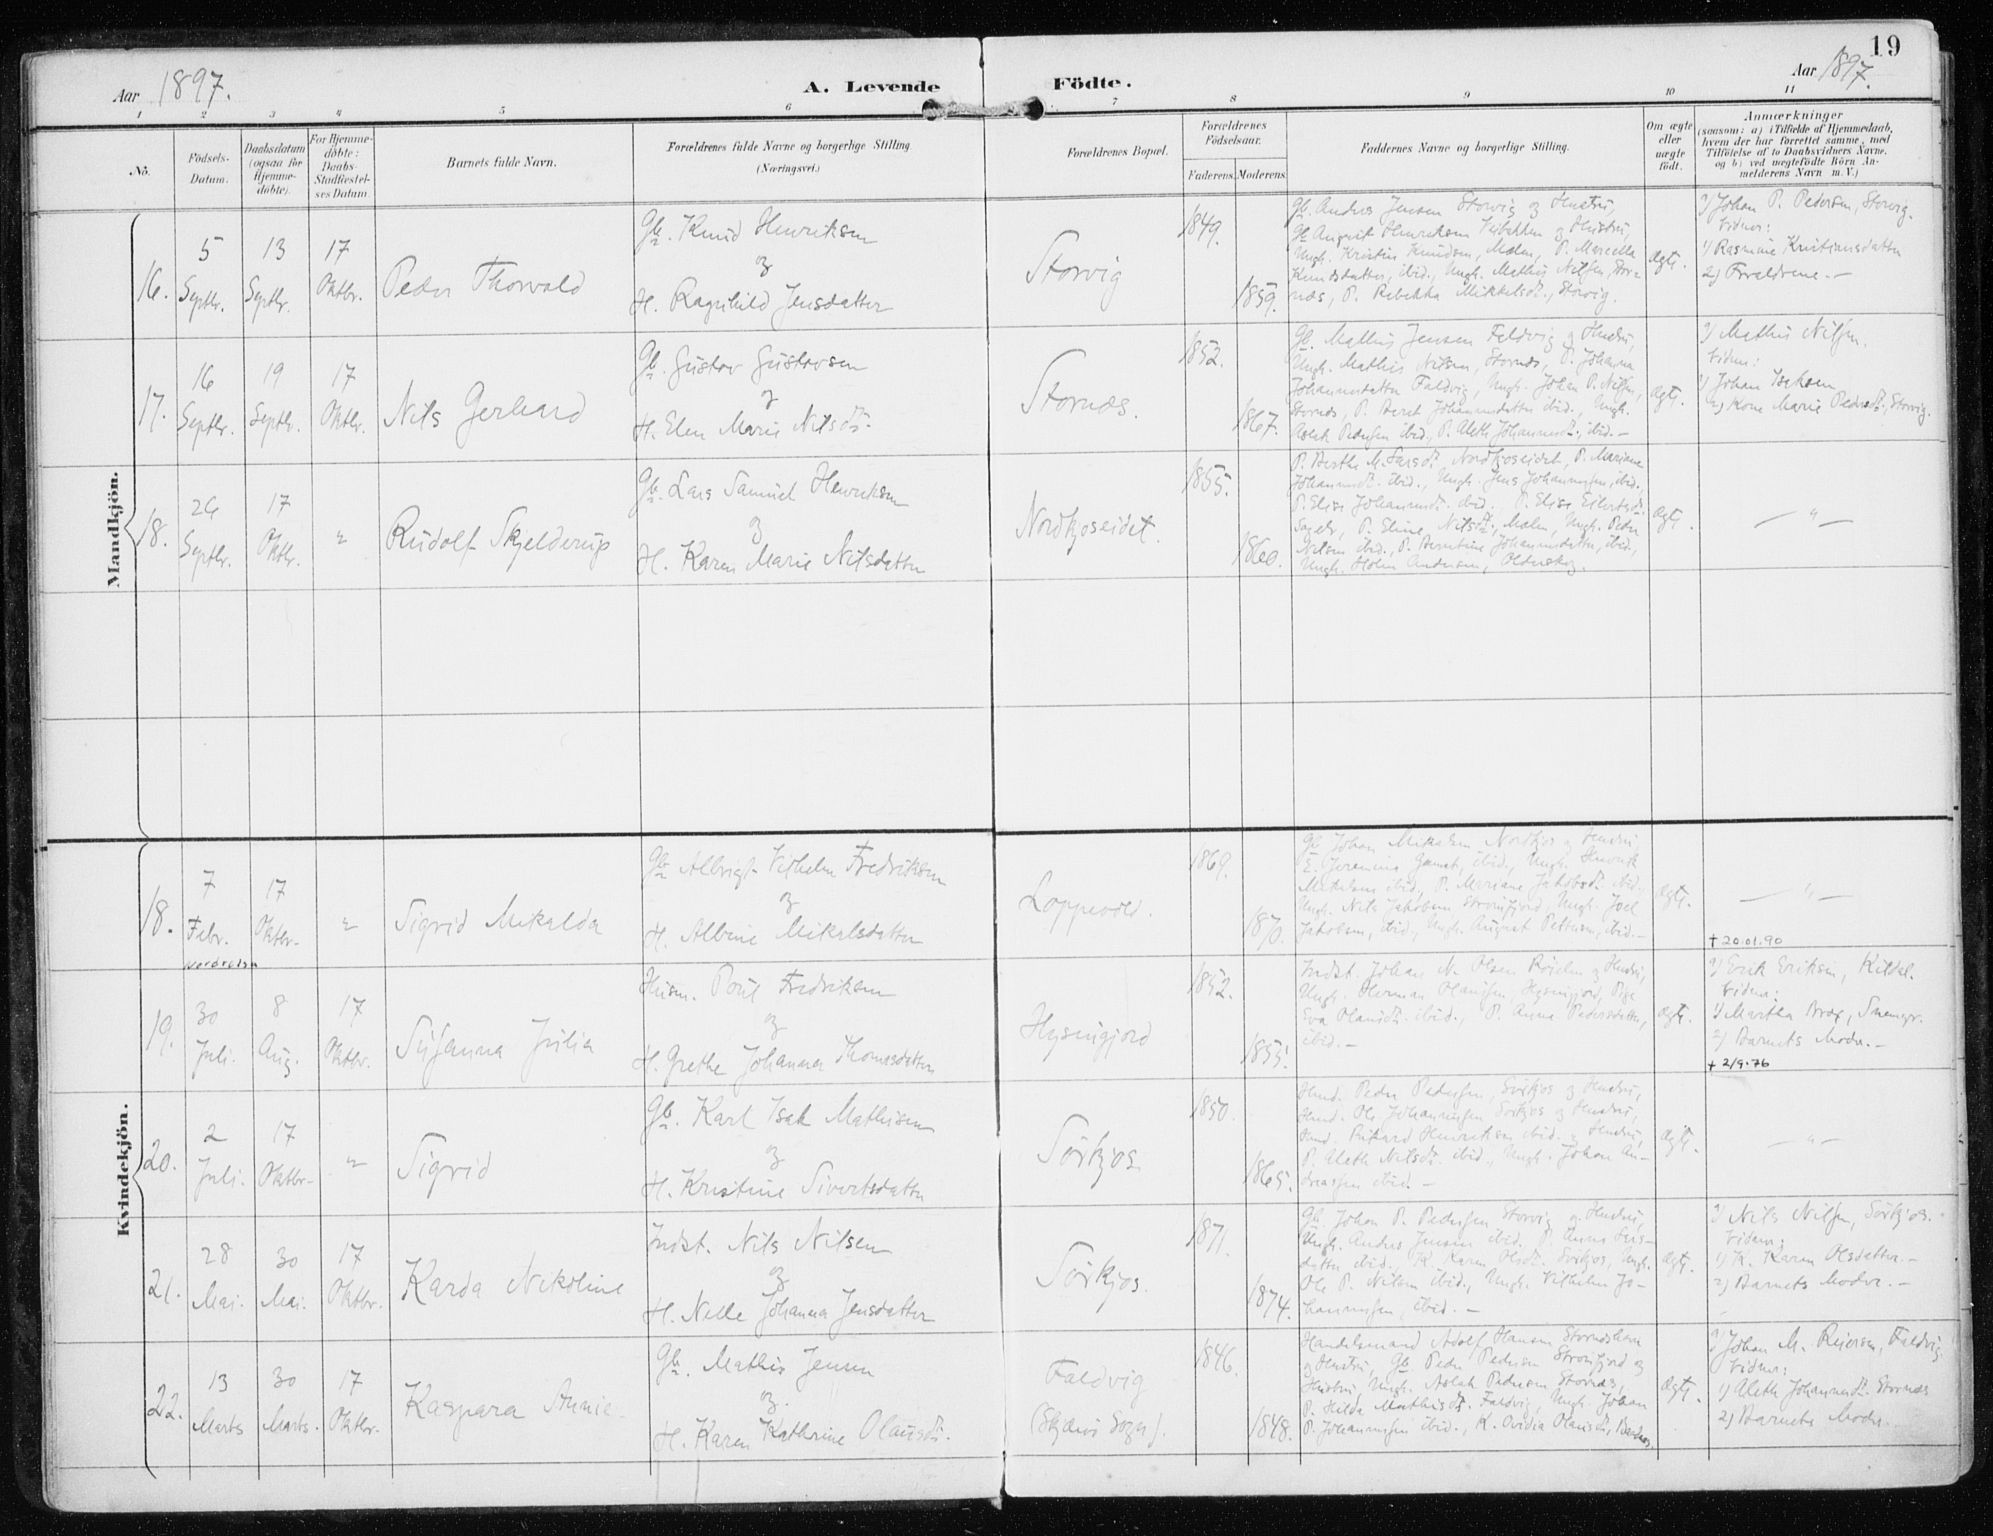 19
Aar 1897.
A. Levende Födte.
Aar 1897.
1 2 3 4 5 6 7 8 9 10 11
No.
Födsels-
Datum.
Daabsdatum
(ogsaa for
Hjemme-
døbte).
For Hjemme-
døbte:
Daabs-
Stadfæstel-
ses Datum
Barnets fulde Navn.
Forældrenes fulde Navne og borgerlige Stilling
(Næringsvei.)
Forældrenes Bopæl.
Forældrenes
Födselsaar.
Faderens. Moderens.
Faddernes Navne og borgerlige Stilling.
Om ægte
eller
uægte
født.
Anmærkninger
(saasom: a) i Tilfælde af Hjemmedaab,
hvem der har forrettet samme, med
Tilføielse af to Daabsvidners Navne,
og b) ved uægtefödte Börn An-
melderens Navn m. V.)
Mandkjön.
16.
5
Septbr.
13
Septbr.
17
Oktbr.
Peder Thorvald
Gb. Knud Henriksen
og
H. Ragnhild Jensdatter
Storvig
1849.
1859.
Gb. Andreas Jensen Storvig og Hustru,
Gb. August Henriksen og Hustru,
Ungk. Kristin Knudsen, Malen, P. Marcella
Knudsdatter, ibid., Ungk. Mathis Nilsen, Stor-
næs, P. Rebekka Mikkelsdtr., Storvig.
ægte.
a) Johan P. Pedersen, Storvig.
Vidner:
1) Rasmine Kristiansdatter
2) Forældrene.-
17.
16
Septbr.
19
Septbr.
17
Oktbr.
Nils Gerhard
Gb. Gustav Gustavsen
og
H. Elen Marie Nilsdtr.
Stornæs.
1852.
1867.
Gb. Mathis Jensen Faldvig og Hustru,
Ungk. Mathis Nilsen, Stornæs, P. Johanna
Johannesdatter Faldvig, Ungk. Johan P. Nilsen,
Stornæs, P. Berit Johannesdatter ibid., Ungk.
Aslak Pedersen ibid., P. Aleth Johannesdtr., ibid.-
ægte.
a) Mathis Nilsen.
Vidner:
1) Johan Isaksen
2) Kone Marie Pedersdtr., Storvig.
18.
26
Septbr.
17
Oktbr.
"
Rudolf Skjelderup
Gb. Lars Samuel Henriksen
og
H. Karen Marie Nilsdatter
Nordkjoseidet.
1855.
1860.
P. Berthe M. Larsdtr. Nordkjoseidet, P. Mariane
Johannesdtr. ibid., Ungk. Jens Johannesen, ibid.,
P. Elise Johannesdtr. ibid., P. Elise Eilertsdtr.
P. Eline Nilsdtr., Malen, Ungk. Peder
Nilsen ibid., P. Berntine Johannesdatter, ibid.,
Ungk. Holm Andersen, Olderskog.
ægte.
— " —
Kvindekjön.
18.
7
Febr.
Nordreisa
17
Oktbr.
"
Sigrid Mekalda
Gb. Albrigt Vilhelm Fredriksen
og
H. Albine Mikalsdatter
Loppevold.
1869.
1870.
Gb. Johan Mikalsen Nordkjos og Hustru,
E. Jeremina ibid., Ungk. Henrik
Mikalsen ibid., P. Mariane Jakobsdtr. ibid.
Ungk. Nils Jakobsen Storfjord, Ungk. Joel
Jakobsen, ibid., Ungk. August Pettersen, ibid.-
ægte.
— " —
+ 20.01.90
19.
30
Juli.
8
Aug.
17
Oktbr.
Susanna Julia
Husm. Poul Fredriksen
og
H. Grethe Johanna Thomasdatter
Hysingjord
1852.
1855.
Indst. Johan N. Olsen og Hustru,
Ungk. Herman Olaussen, Hysingjord, Pige
Eva Olausdtr. ibid., P. Anna Pedersdatter,
ibid.-
ægte.
a) Erik Eriksen, Kildal.
Vidner:
1) Martha Brox,
2) Barnets Moder.-
+ 2/9-76
20.
2
Juli.
17
Oktbr.
"
Sigrid
Gb. Karl Isak Mathisen
og
H. Kristine Sivertsdatter
Sörkjos
1850.
1865.
Husm. Peder Pedersen, Sörkjos og Hustru,
Husm. Ole Johannesen Sörkjos og Hustru,
Husm. Rikard Henriksen ibid. og Hustru,
P. Aleth Nilsdtr. ibid., Ungk. Johan An-
dreassen ibid.-
ægte.
— " —
21.
28
Mai.
30
Mai.
17
Oktbr.
Karda Nikoline
Indst. Nils Nilsen
og
H. Nelle Johanna Jensdatter
Sörkjos.
1871.
1874.
Gb. Johan P. Pedersen Storvig og Hustru,
Ungk. Andreas Jensen ibid. P. Anna Lars-
datter ibid., K. Karen Olsdtr. Sörkjos, Ungk.
Ole P. Nilsen ibid., Ungk. Vilhelm Jo-
hannesen, ibid.-
ægte.
a) Nils Nilsen, Sörkjos.
Vidner:
1) K. Karen Olsdatter.-
2) Barnets Moder.-
22.
13
Marts
30
Marts.
17
Oktbr.
Kaspara Annie
Gb. Mathis Jensen
og
H. Karen Kathrine Olausdtr.
Faldvig
(Skjervö Sogn).
1846.
1848.
Handelsmand Adolf Hansen Stornæshavn
og Hustru, Gb. Peder Pedersen Storfjord og
Hustru, Ungk. Aslak Pedersen Stornæs,
P. Hilda Mathisdtr. Faldvig, Ungk. Johan
P. Johannesen ibid., K. Ovidia Olausdtr,
ægte.
a) Johan M. Reiersen, Faldvig.
Vidner:
1) Aleth Johannesdtr. Stornæs
2) Barnets Moder.